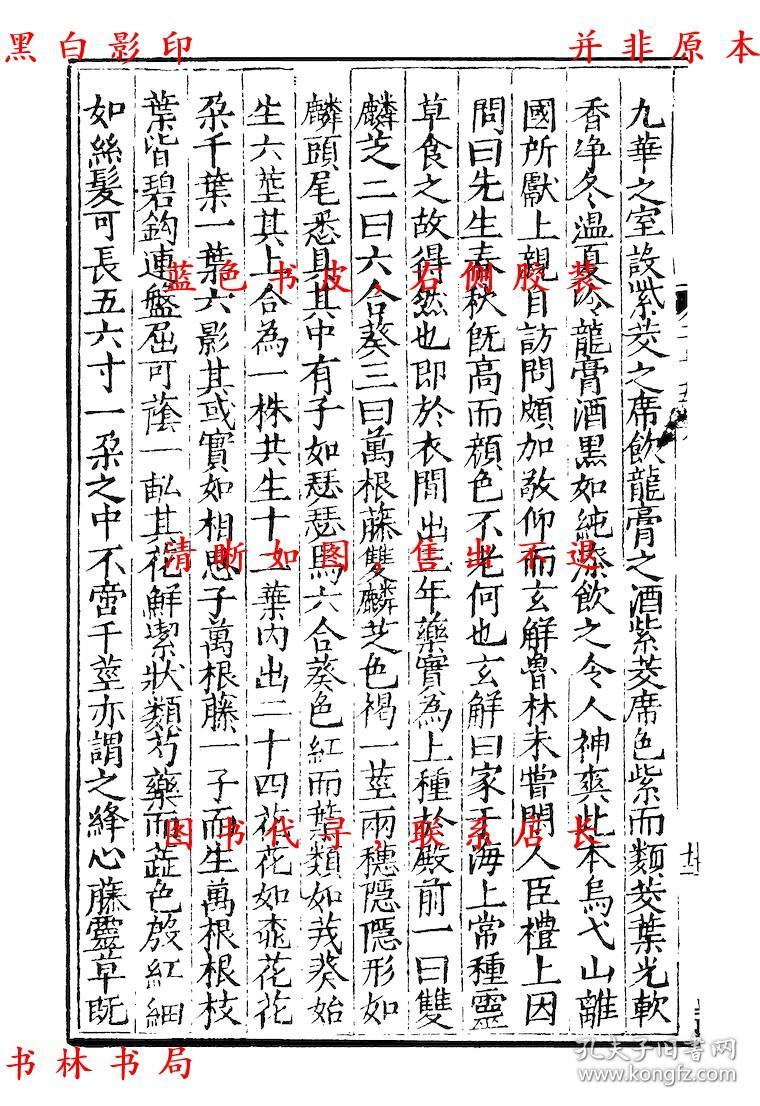 黑白影印
并非原本
九華之室設紫茭之席飲龍膏之酒紫茭席色紫而類茭葉光軟
香净冬温夏冷龍膏酒黑如純漆飲之令人神爽此本烏弋山離
國所獻上親自訪問頗加敬仰而玄解魯林未嘗閑人臣禮上因
問曰先生春秋旣高而顔色不老何也玄解曰家于海上常種靈
草食之故得然也即於衣間出三年藥實為上種於殿前一曰雙
麟芝二曰六合葵三曰萬根藤雙麟芝色褐一莖兩穗隱隱形如
麟頭尾悉具其中有子如瑟瑟焉六合葵色紅而葉類如茙葵始
生六莖其上合為一株共生十二葉內出二十四花花如桃花花
朶千葉一葉六影其或實如相思子萬根藤一子而生萬根根枝
葉皆碧鈎連盤屈可蔭一畝其花鮮潔狀類芍藥而蘂色殷紅細
如絲髮可長五六寸一朶之中不啻千莖亦謂之絳心藤靈草旣
蓝色书皮，右侧胶装
清晰如图，售出不退
图书代寻，联系店长
书林书局
孔夫子旧书网
www.kongfz.com